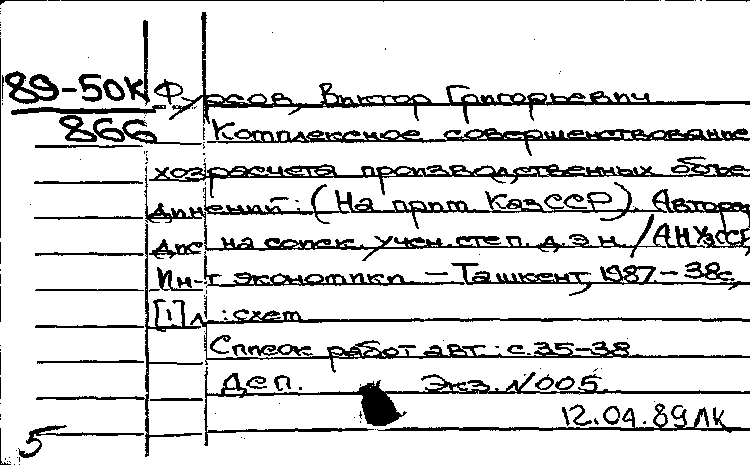 89-50К Фурсов, Виктор Григорьевич
866 Комплексное совершенствование
хозрасчета производственных объе-
динений: (На прим. КазССР). Автореф.
дис на соиск. учен. степ. д.э.н. /АН УзССР,
Ин-т экономики. – Ташкент, 1987. – 38с,
[1]л : схем
Список работ авт.: с.35-38
Деп. Экз. №005.
12.04.89ЛК
5